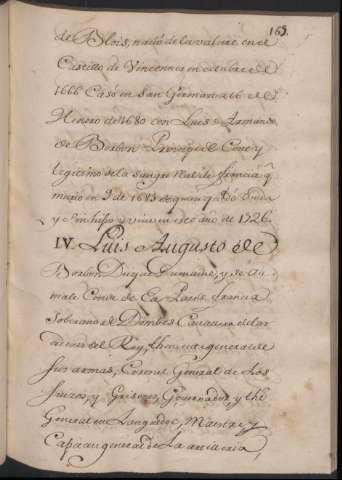 165.
de Blois, nacio de la Valiere en el
Castillo de Vincennes en octubre de
1666 Casó en San German a 16 de
Henero de 1680 con Luis Armando
de Borbon Principe de Conty
legitimo de la sangre Real de francia q
murio en 9 de 1685 de quien quedo viuda
y sin hijos y vive en este año de 1726.
IV. Luis Augusto de
Borbon Duque Dumaine, y de Au
male Conde de Eu Par de francia
Soberano de Dombes Cavallero de las
ordenes del Rey, theniente general de
sus armas, Coronel General de los
suizos, y Grisones, Governador y the
General en Languedoc, Maestre y
Capitan general de La artilleria,